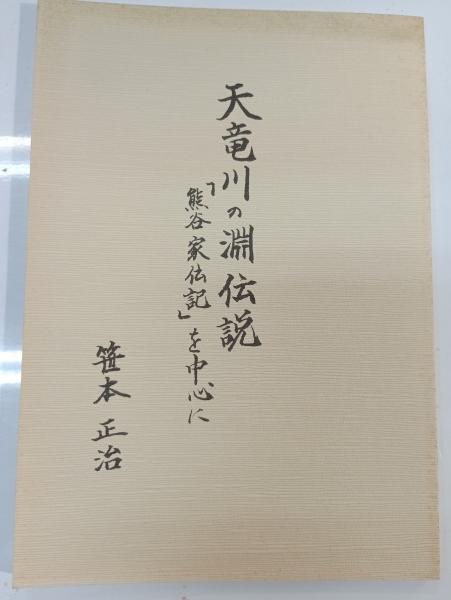 天竜川の淵伝説
「熊谷家伝記」を中心に
笹本正治